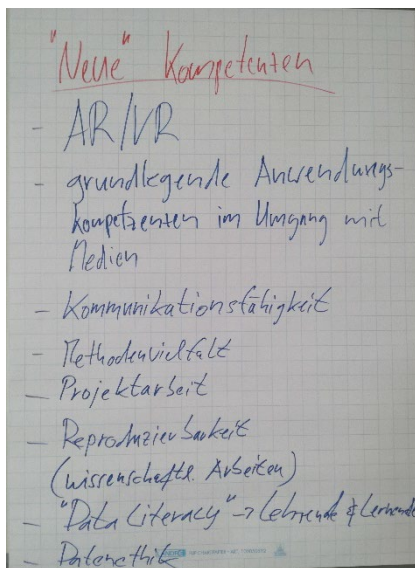 "Neue" Kompetenzen
- AR/VR
- grundlegende Anwendungs-
kompetenzen im Umgang mit
Medien
- Kommunikationsfähigkeit
- Methodenvielfalt
- Projektarbeit
- Reproduzierbarkeit
(wissenschaftl. Arbeiten)
- "Data Literacy" -> Lehrende & Lernende
- Datenethik